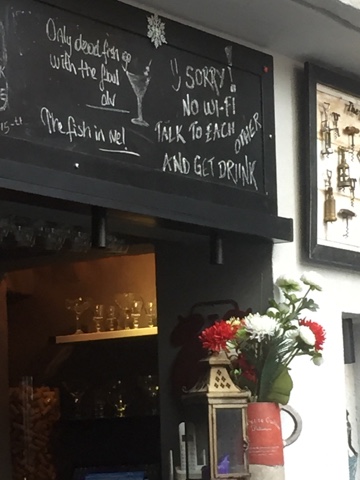 Only dead fish go
with the flow
The fish in we!
!! SORRY!
NO WI-FI
TALK TO EACH OTHER
AND GET DRUNK